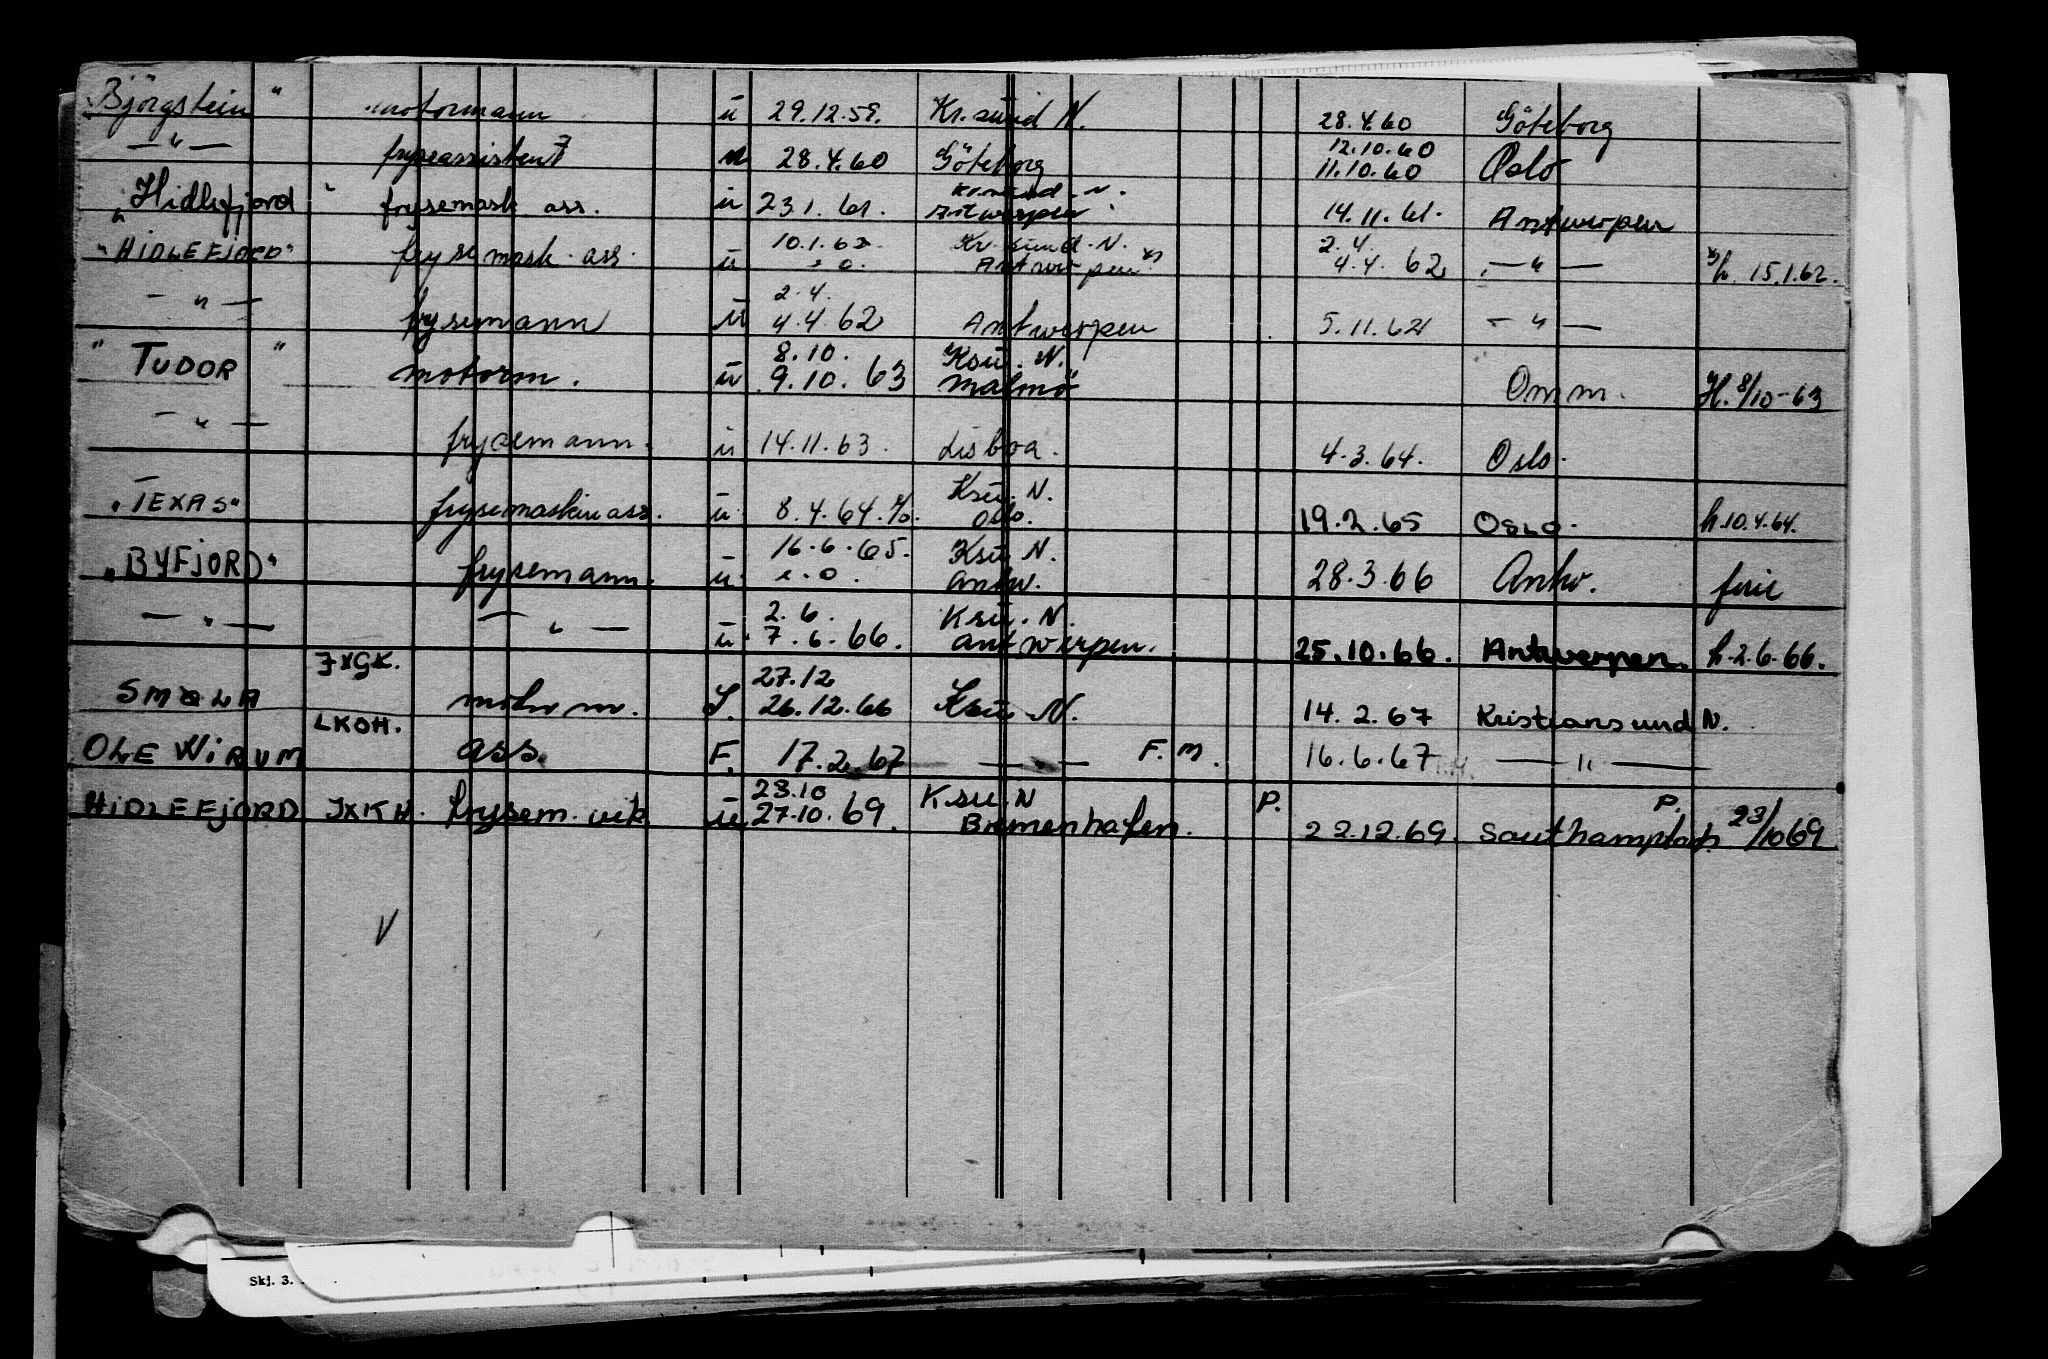 "Björgstein" motormann ü 29.12.59. Kr.sund N. 28.4.60 Göteborg
— " — fryseassistent ü 28.4.60 Göteborg 12.10.60 11.10.60 Oslo
"Hidlefjord" frysemask. ass. ü 23.1.61. Kr.sund. N. Antwerpen 14.11.61. Antwerpen
"HIDLEFJORD" frysemask. ass. ü 10.1.62. Kr.sund. N. Antwerpen 2.4. 4.4.62 — " — h. 15.1.62.
— " — frysemann ü 2.4. 4.4.62 Antwerpen 5.11.62 — " —
"TUDOR" motorm. ü 8.10. 9.10.63 Ksu. N. Malmö Omm. H. 8/10-63
— " — frysemann. ü 14.11.63. Lisboa. 4.3.64. Oslo.
"TEXAS" frysemaskinass. ü 8.4.64. Ksu. N. Oslo. 19.2.65 OSLO. h.10.4.64.
"BYFJORD" frysemann. ü 16.6.65. i.o. Ksu. N. Antw. 28.3.66 Antw. ferie
— " — — " — ü. 2.6. 7.6.66. Ksu. N. Antwerpen. 25.10.66. Antwerpen. h.2.6.66.
SMØLA JXGK. motorm. S. 27.12 26.12.66 Ksu. N. 14.2.67 Kristiansund N.
OLE WIRUM LKOH. ass. F. 17.2.67 — " — F.M. 16.6.67 — " —
HIDLEFJORD JXKH. frysem. vik ü 28.10 27.10.69. Ksu. N Bremenhafen. P. 22.12.69. P. Southampton h. 23/10 69
V
Skj. 3.